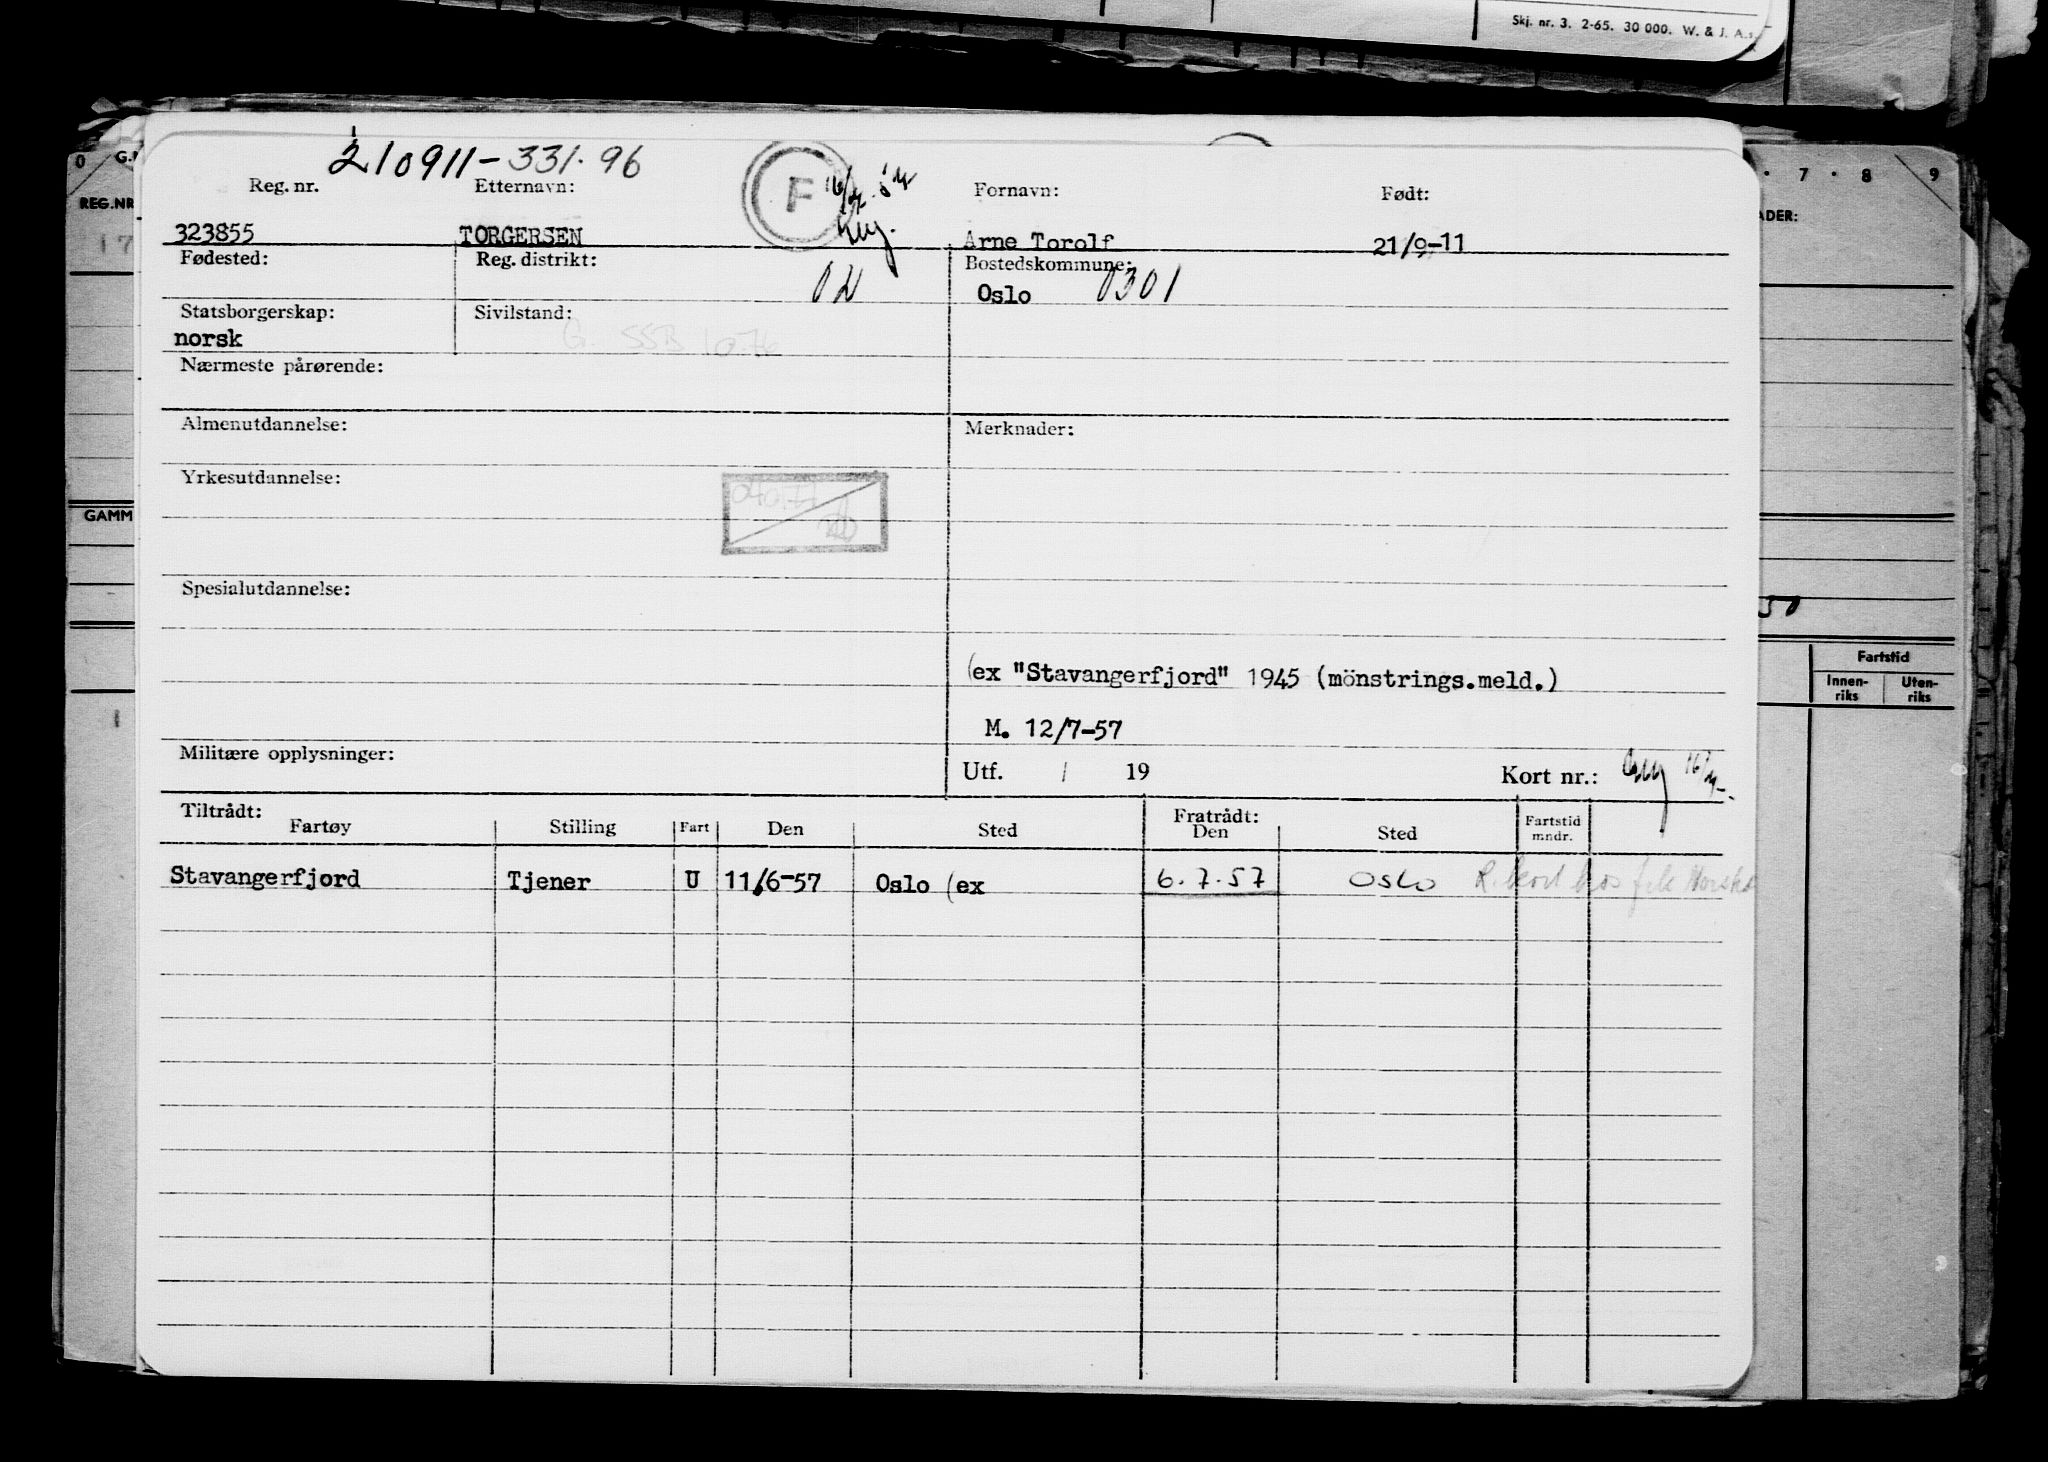 Skj. nr. 3. 2-65. 30 000. W. & J. A.s.
210911-331.96
Reg. nr. Etternavn: F Fornavn: Født:
323855 TORGERSEN Arne Torolf 21/9-11
Fødested: Reg. distrikt: 02 Bostedskommune:
Oslo 0301
Statsborgerskap: Sivilstand:
norsk G. SSB 10.76
Nærmeste pårørende:
Almenutdannelse: Merknader:
Yrkesutdannelse:
Spesialutdannelse:
(ex "Stavangerfjord" 1945 (mönstrings.meld.)
M. 12/7-57
Militære opplysninger: Utf. / 19 Kort nr.:
Tiltrådt: Fratrådt:
Fartøy Stilling Fart Den Sted Den Sted Fartstid mndr.
Stavangerfjord Tjener U 11/6-57 Oslo (ex 6.7.57 OSLO
REG.NR
GAMM
7 · 8 9
ADER:
50
Fartstid
Innen-riks Uten-riks